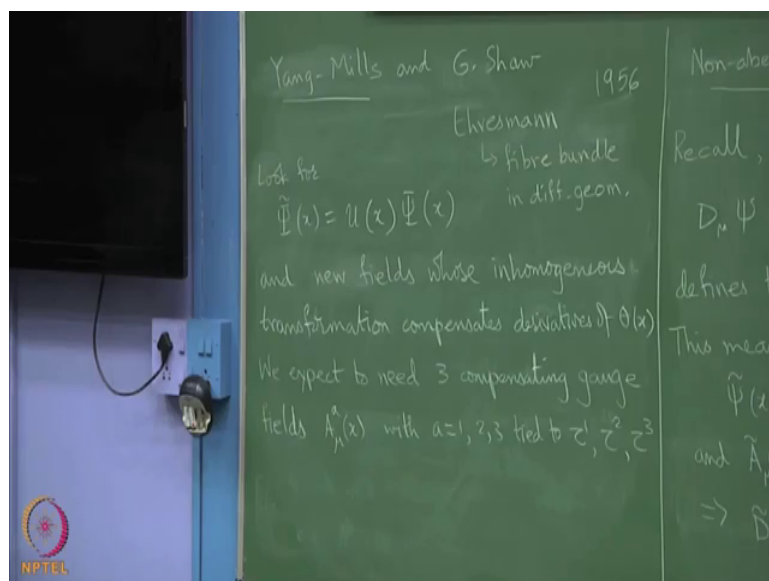 Yang-Mills and G. Shaw
1956
Ehresmann
↳ fibre bundle
in diff. geom.
Look for
Ψ̃(x) = U(x) Ψ(x)
and new fields whose inhomogeneous
transformation compensates derivatives of θ(x)
We expect to need 3 compensating gauge
fields A^a_μ(x) with a=1,2,3 tied to τ^1, τ^2, τ^3
Non-abe
Recall,
D_μ Ψ
defines t
This mea
Ψ̃(x
and Ã_μ
⇒ D̃
NPTEL